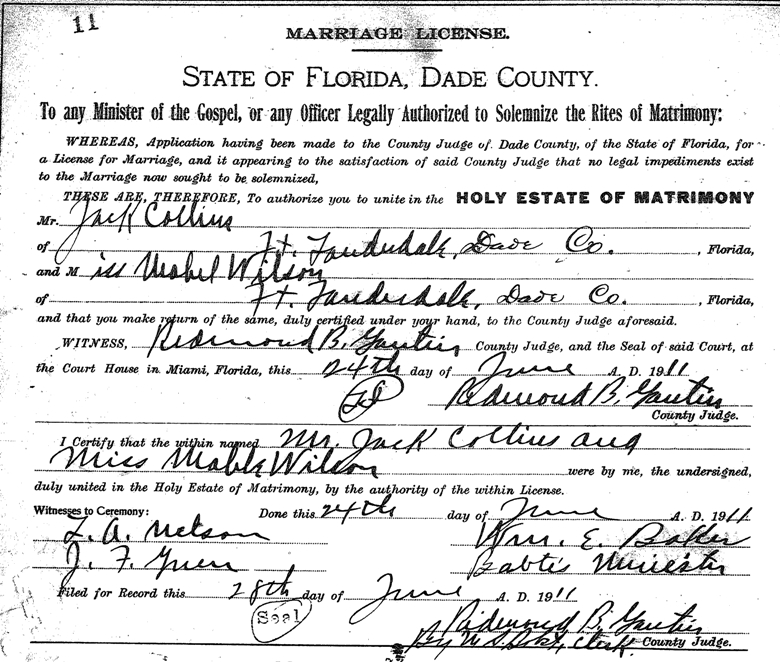 11
MARRIAGE LICENSE.
STATE OF FLORIDA, DADE COUNTY.
To any Minister of the Gospel, or any Officer Legally Authorized to Solemnize the Rites of Matrimony:
WHEREAS, Application having been made to the County Judge of Dade County, of the State of Florida, for
a License for Marriage, and it appearing to the satisfaction of said County Judge that no legal impediments exist
to the Marriage now sought to be solemnized,
THESE ARE, THEREFORE, To authorize you to unite in the HOLY ESTATE OF MATRIMONY
Mr. Jack Collins
of Ft. Lauderdale, Dade Co., Florida,
and Miss Mabel Wilson
of Ft. Lauderdale, Dade Co., Florida,
and that you make return of the same, duly certified under your hand, to the County Judge aforesaid.
WITNESS, Redmond B. Gautier County Judge, and the Seal of said Court, at
the Court House in Miami, Florida, this 24th day of June A. D. 1911
Redmond B. Gautier
County Judge.
I Certify that the within named Mr. Jack Collins and
Miss Mable Wilson were by me, the undersigned,
duly united in the Holy Estate of Matrimony, by the authority of the within License.
Witnesses to Ceremony: Done this 24th day of June A. D. 1911
L. A. Nelson Wm. E. Baker
J. F. Babtis Minister
Filed for Record this 28th day of June A. D. 1911
Seal Redmond B. Gautier
By Clerk. County Judge.